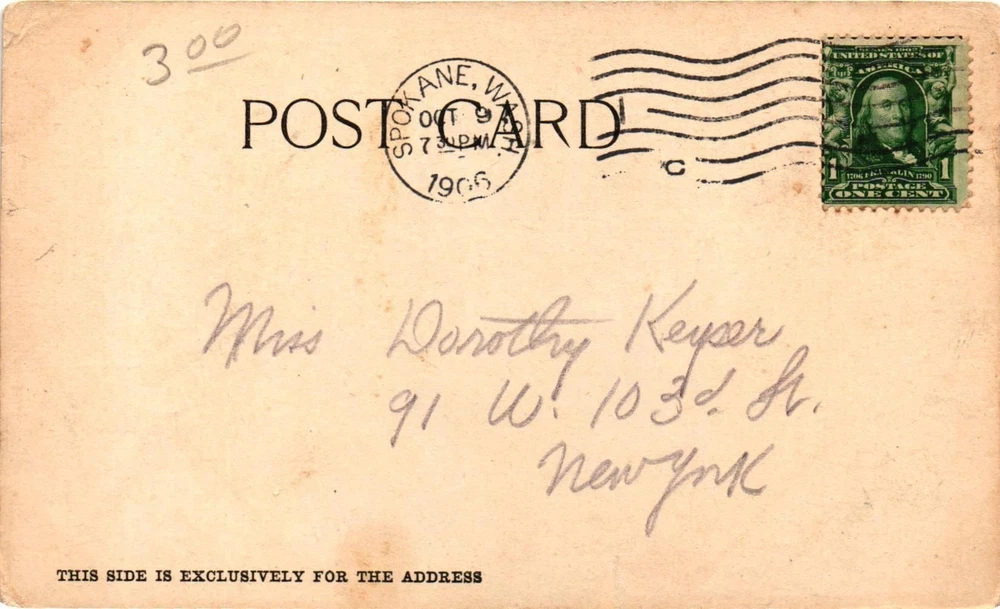 3 00
POST CARD
SPOKANE, WASH.
OCT 9
7 30 PM
1906
C
SERIES 1902
UNITED STATES OF
AMERICA
1 1706 FRANKLIN 1790 1
POSTAGE
ONE CENT
Miss Dorothy Keyser
91 W. 103d. St.
New York
THIS SIDE IS EXCLUSIVELY FOR THE ADDRESS